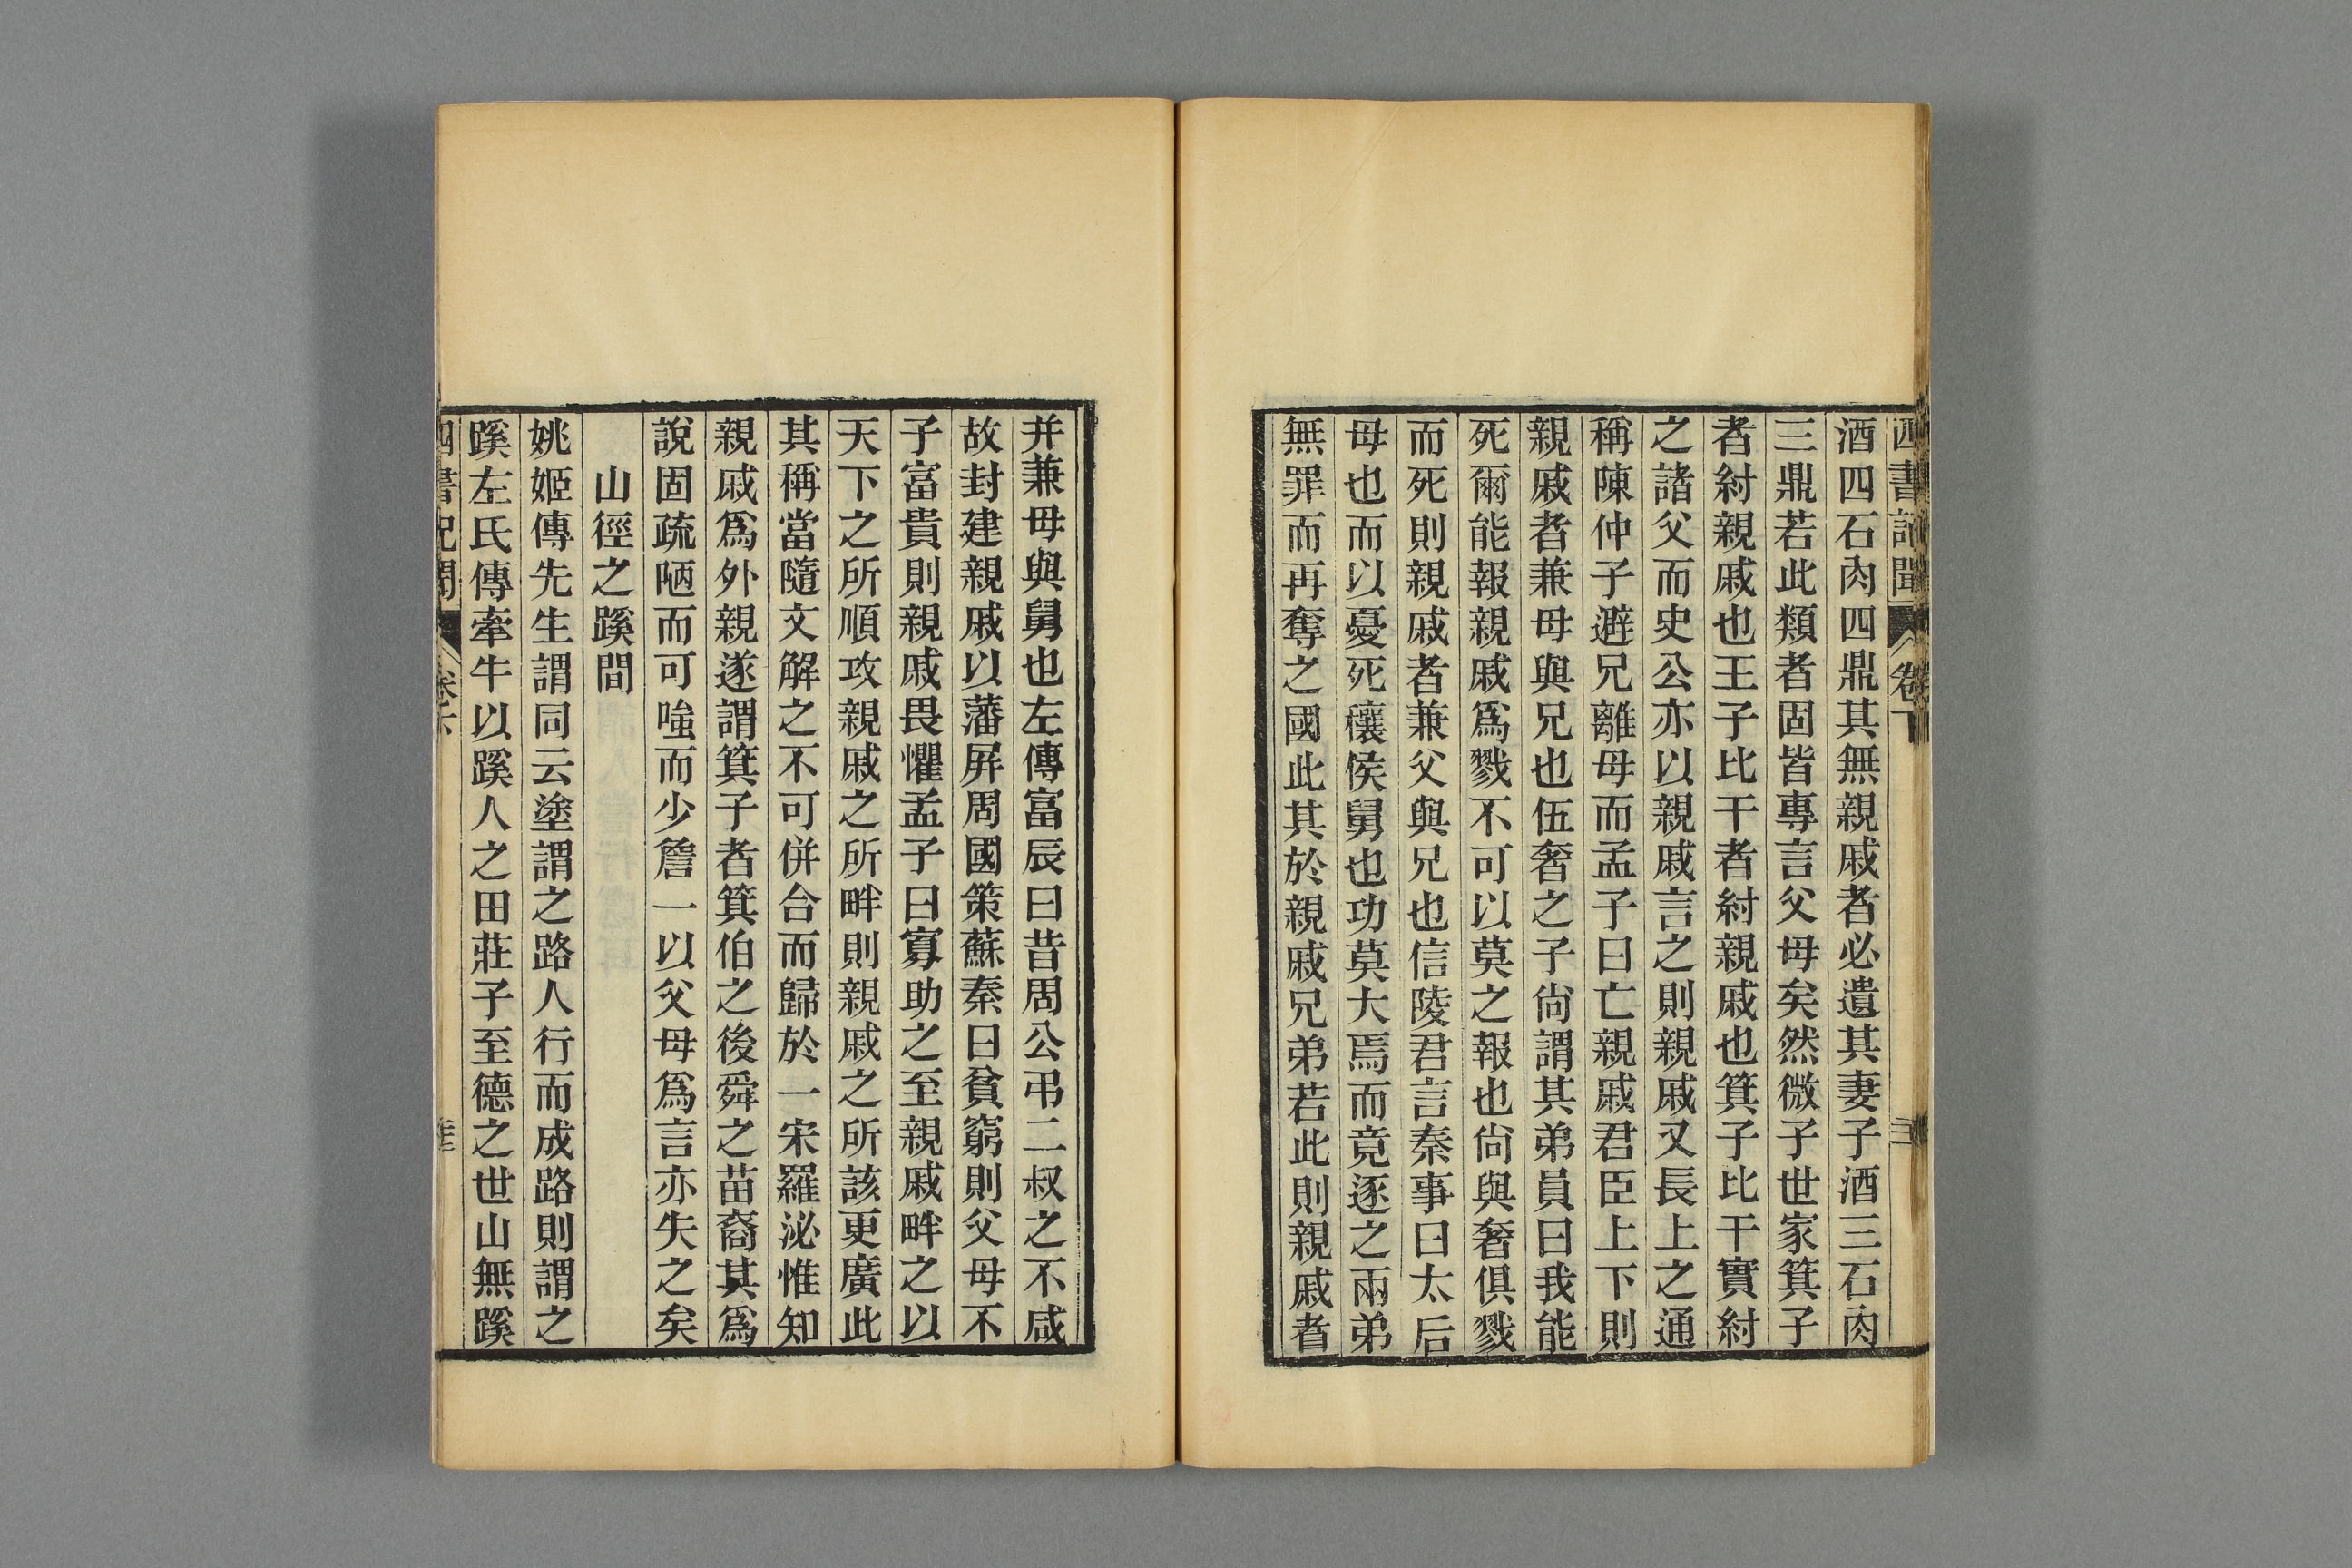 酒四石肉四鼎其無親戚者必遺其妻子酒三石肉
三鼎若此類者固皆專言父母矣然微子世家箕子
者紂親戚也王子比干者紂親戚也箕子比干實紂
之諸父而史公亦以親戚言之則親戚又長上之通
稱陳仲子避兄離母而孟子曰亡親戚君臣上下則
親戚者兼母與兄也伍奢之子尙謂其弟員曰我能
死爾能報親戚爲戮不可以莫之報也尙與奢俱戮
而死則親戚者兼父與兄也信陵君言秦事曰太后
母也而以憂死穰侯舅也功莫大焉而竟逐之兩弟
無罪而再奪之國此其於親戚兄弟若此則親戚者
并兼母與舅也左傳富辰曰昔周公弔二叔之不咸
故封建親戚以藩屏周國策蘇秦曰貧窮則父母不
子富貴則親戚畏懼孟子曰寡助之至親戚畔之以
天下之所順攻親戚之所畔則親戚之所該更廣此
其稱當隨文解之不可併合而歸於一宋羅泌惟知
親戚爲外親遂謂箕子者箕伯之後舜之苗裔其爲
說固疏陋而可嗤而少詹一以父母爲言亦失之矣
山徑之蹊間
姚姬傳先生謂同云塗謂之路人行而成路則謂之
蹊左氏傳牽牛以蹊人之田莊子至德之世山無蹊